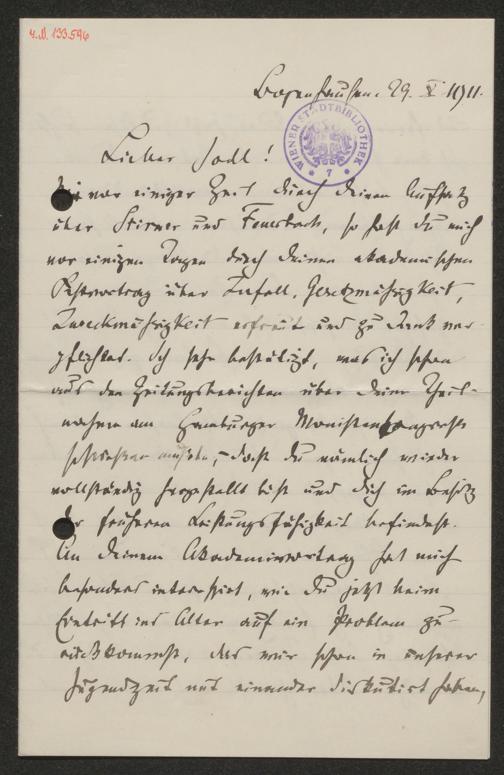 H.N. 133.596
Bogenhausen 29. X 1911.
WIENER STADTBIBLIOTHEK
7
Lieber Jodl!
Wie vor einiger Zeit durch Deinen Aufsatz
über Stirner und Feuerbach, so hast Du mich
vor einigen Tagen durch Deinen akademischen
Festvortrag über Zufall, Gesetzmäßigkeit,
Zweckmäßigkeit erfreut und zu Dank ver-
pflichtet. Ich sehe bestätigt, was ich schon
aus den Zeitungsberichten über Deine Theil-
nahme am Hamburger Monistenkongresse
schließen mußte, – daß Du nämlich wieder
vollständig hergestellt bist und Dich im Besitz
der früheren Leistungsfähigkeit befindest.
An Deinem Akademievortrag hat mich
besonders interessirt, wie Du jetzt beim
Eintritt ins Alter auf ein Problem zu-
rückkommst, das wir schon in unserer
Jugendzeit mit einander diskutirt haben,